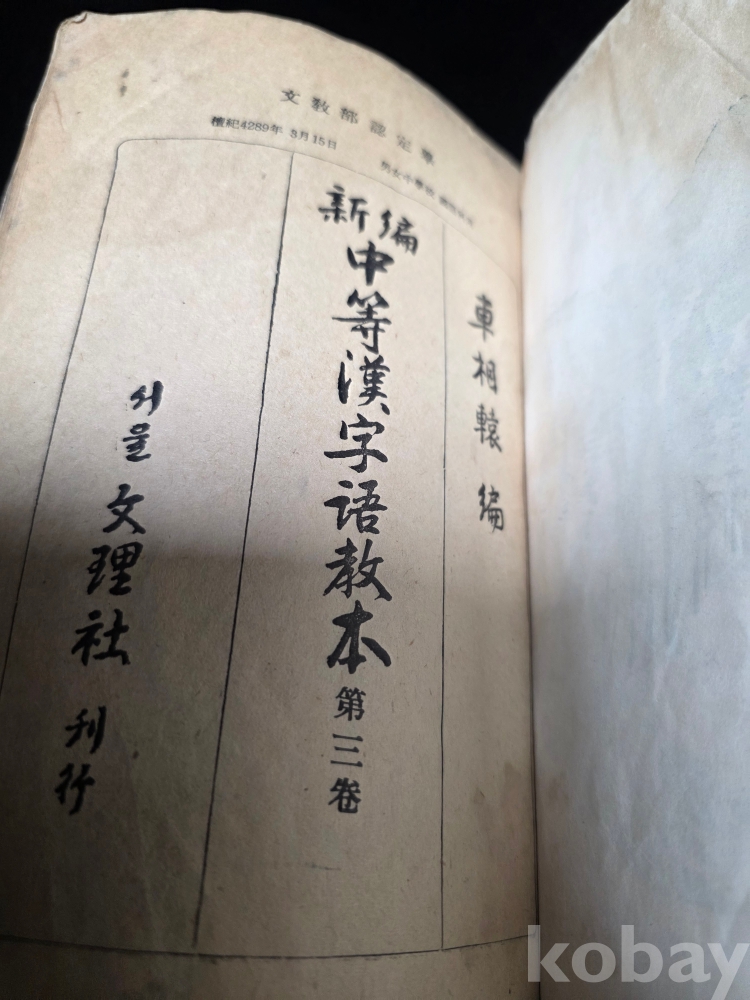 文敎部認定畢
檀紀4289年 3月15日
車相轅 編
新編
中等漢字語敎本 第三卷
서울 文理社 刊行
kobay